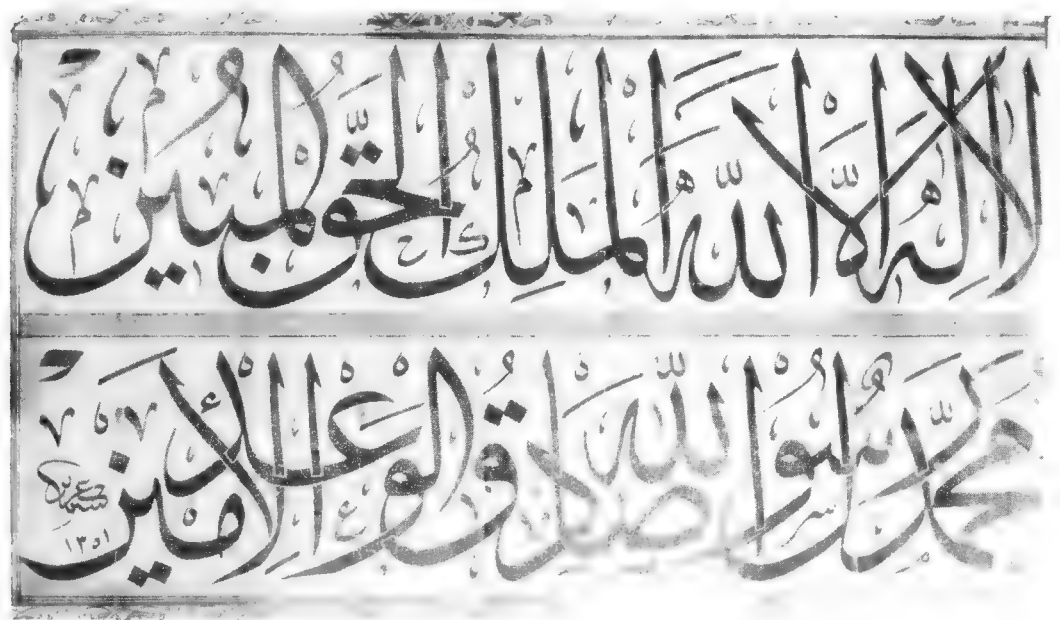 لا إله إلا الله الملك الحق المبين
محمد رسول الله صادق الوعد الأمين
١٣٥١